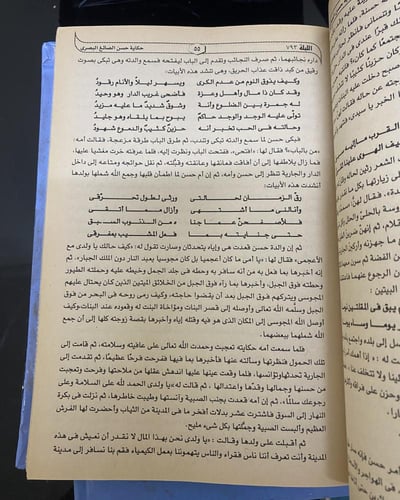 الليلة ٧٩٣
٥٥
حكاية حسن الصائغ البصرى
داره نجائبهما، ثم صرف النجائب وتقدم إلى الباب ليفتحه فسمع والدته وهى تبكى بصوت
رقيق من كبد ذاقت عذاب الحريق، وهى تنشد هذه الأبيات:
وكيف يذوق النوم من عدم الكرى
ويسهر ليلاً والأنام رقود
وقد كان ذا مال وأهل وعزة
فأضحى غريب الدار وهو وحيد
له جمرة بين الضلوع وأنة
وشوق شديد ما عليه مزيد
تولى عليه الوجد والوجد حاكم
ينوح بما يلقاه وهو جليد
وحالته فى الحب تخبر أنه
حزين كئيب والدموع شهود
فبكى حسن لما سمع والدته تبكى وتندب، ثم طرق الباب طرقة مزعجة، فقالت أمه:
«من بالباب»؟ فقال لها: «افتحى»، ففتحت الباب ونظرت إليه، فلما عرفته خرت مغشيا عليها،
فما زال يلاطفها إلى أن أفاقت فعانقها وعانقته وقبلته، ثم نقل حوائجه ومتاعه إلى داخل
الدار والجارية تنظر إلى حسن وأمه، ثم إن أم حسن لما اطمأن قلبها وجمع الله شملها بولدها
أنشدت هذه الأبيات:
رق الزمان لحالتى
ورثى لطول تحرقى
وأنالنى ما أشتهى
وأزال مما أتقى
فلأصفحن عما جنى
من الذنوب السبق
حتى جنايته بما
فعل المشيب بمفرقى
ثم إن والدة حسن قعدت هى وإياه يتحدثان وصارت تقول له: «كيف حالك يا ولدى مع
الأعجمى» فقال لها: «يا أمى ما كان أعجميا بل كان مجوسيا يعبد النار دون الملك الجبار»، ثم
إنه أخبرها بما فعل به من أنه سافر به وحطه فى جلد الجمل وخيطه عليه وحملته الطيور
وحطته فوق الجبل، وأخبرها بما رآه فوق الجبل من الخلائق الميتين الذين كان يحتال عليهم
المجوسى ويتركهم فوق الجبل بعد أن يقضوا حاجته، وكيف رمى روحه فى البحر من فوق
الجبل وسلمه الله تعالى وأوصله إلى قصر البنات ومؤاخاة البنت له وقعوده عند البنات، وكيف
أوصل الله المجوسى إلى المكان الذى هو فيه وقتله إياه وأخبرها بقصة زوجته كلها إلى أن جمع
الله شملهما ببعضهما.
فلما سمعت أمه حكايته تعجبت وحمدت الله تعالى على عافيته وسلامته، ثم قامت إلى
تلك الحمول فنظرتها وسألته عنها فأخبرها بما فيها ففرحت فرحًا عظيمًا، ثم تقدمت إلى
الجارية تحدثها وتؤانسها، فلما وقعت عينها عليها اندهش عقلها من ملاحتها وفرحت وتعجبت
من حسنها وجمالها وقدها واعتدالها، ثم قالت له: «يا ولدى الحمد لله على السلامة وعلى
رجوعك سالمًا»، ثم إن أمه قعدت بجنب الصبية وآنستها وطيبت خاطرها، ثم نزلت فى بكرة
النهار إلى السوق فاشترت عشر بدلات أفخر ما فى المدينة من الثياب وأحضرت لها الفرش
العظيم وألبست الصبية وجملتها بكل شىء مليح.
ثم أقبلت على ولدها وقالت: «يا ولدى نحن بهذا المال لا نقدر أن نعيش فى هذه
المدينة وأنت تعرف أننا ناس فقراء والناس يتهموننا بعمل الكيمياء فقم بنا نسافر إلى مدينة